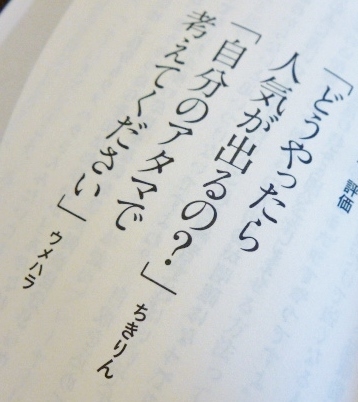 評価
「どうやったら
人気が出るの？」 ちきりん
「自分のアタマで
考えてください」 ウメハラ